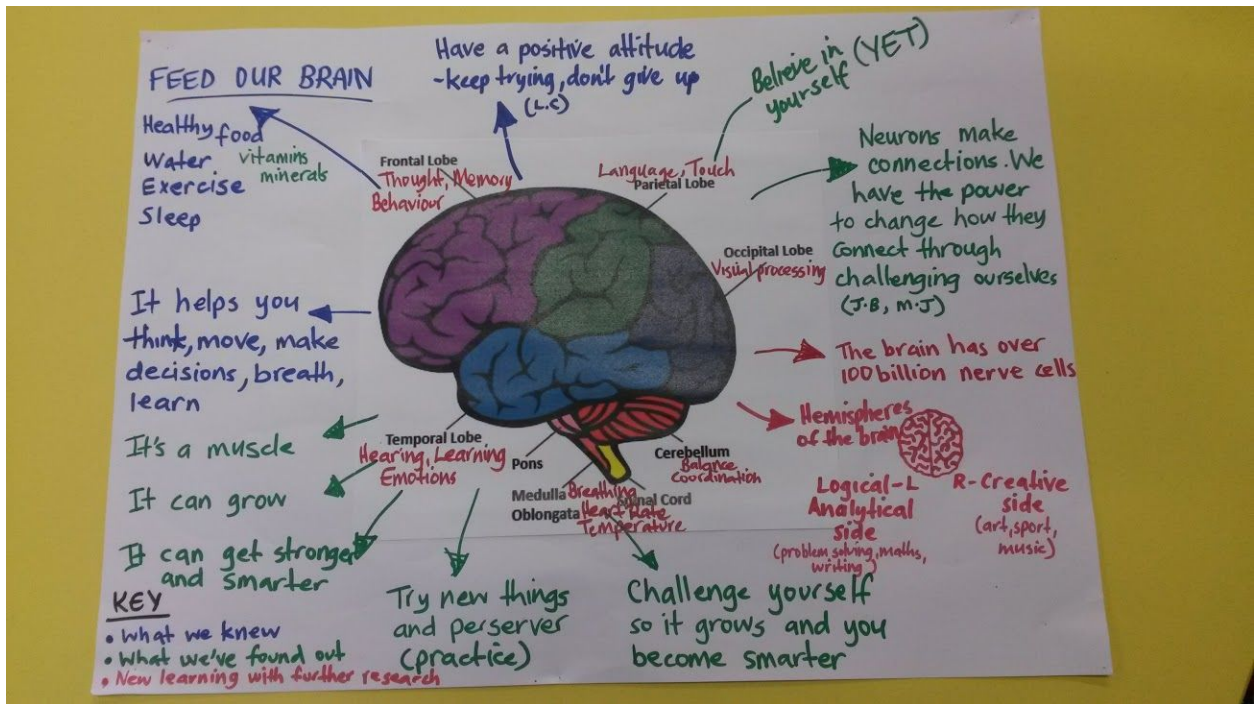 FEED OUR BRAIN
Healthy food
Water vitamins
minerals
Exercise
Sleep
Have a positive attitude
-keep trying, don't give up
(L.C)
Believe in (YET)
yourself
Neurons make
connections. We
have the power
to change how they
connect through
challenging ourselves
(J.B, M.J)
Frontal Lobe
Thought, Memory
Behaviour
Language, Touch
Parietal Lobe
Occipital Lobe
Visual processing
It helps you
think, move, make
decisions, breath,
learn
The brain has over
100 billion nerve cells
Hemispheres
of the brain
Logical-L
Analytical
side
(problem solving, maths,
writing)
R-Creative
side
(art, sport,
music)
It's a muscle
It can grow
It can get stronger
and smarter
Temporal Lobe
Hearing, Learning
Emotions
Pons
Medulla
Oblongata
Breathing
Heart Rate
Temperature
Spinal Cord
Cerebellum
Balance
Coordination
Try new things
and perserver
(practice)
Challenge yourself
so it grows and you
become smarter
KEY
• What we knew
• What we've found out
• New learning with further research